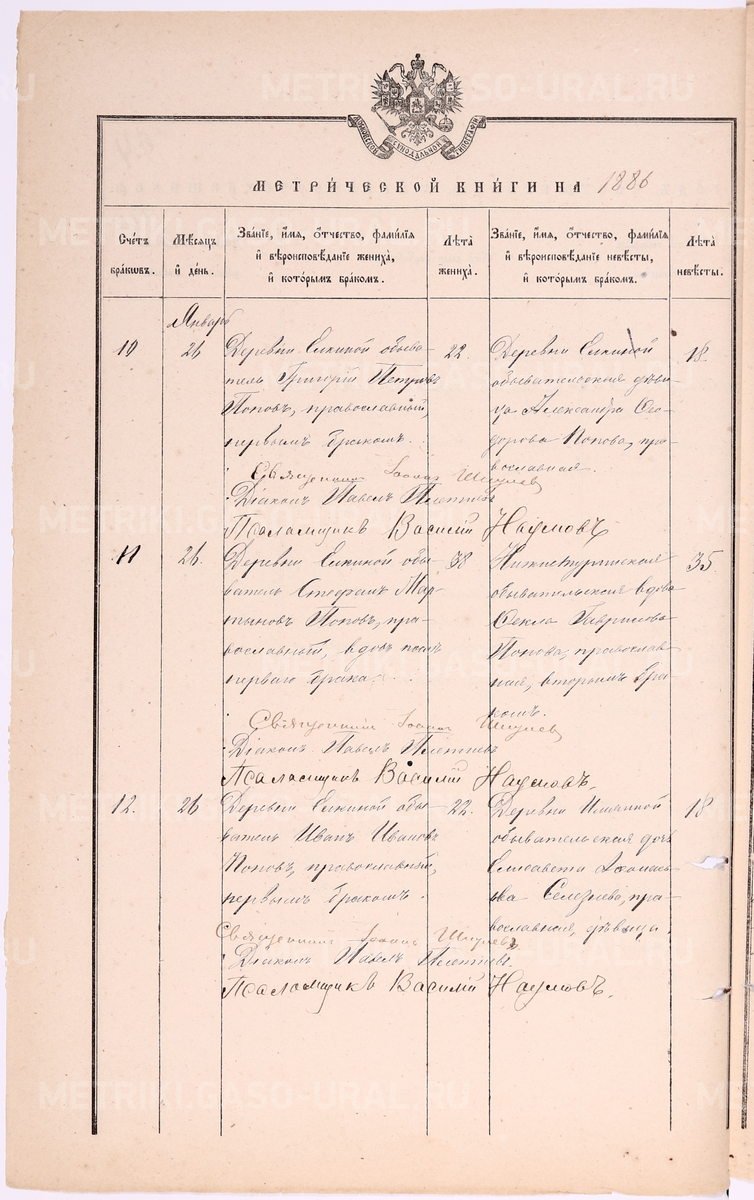 МЕТРИ́ЧЕСКОЙ КНИ́ГИ НА 1886
Сче́тъ бра́кшвъ.
Мѣ́сяцъ й де́нь.
Зва́нїе, и҆́мя, о҆́тчество, фами́лїя й вѣроисповѣ́данїе жениха̀, й кото́рымъ бра́комъ.
Лѣ́та жениха̀.
Зва́нїе, и҆́мя, о҆́тчество, фами́лїя й вѣроисповѣ́данїе невѣ́сты, й кото́рымъ бра́комъ.
Лѣ́та невѣ́сты.
Январь
10
26
Деревни Елкиной обыва-
тель Григорій Петровъ
Поповъ, православный,
первымъ бракомъ.
22.
Деревни Елкиной
обывательская дѣви-
ца Александра Ѳео-
дорова Попова, пра-
вославная.
18.
Священникъ Іоаннъ
Діаконъ Павелъ
Псаломщикъ Василій Наумовъ
11
26.
Деревни Елкиной обы-
ватель Стефанъ Мар-
тыновъ Поповъ, пра-
вославный, вдовъ послѣ
перваго брака.
38
Нижнетуринская
обывательская вдова
Ѳекла Гаврилова
Попова, православ-
ная, вторымъ бра-
комъ.
35.
Священникъ Іоаннъ
Діаконъ Павелъ
Псаломщикъ Василій Наумовъ.
12.
26
Деревни Елкиной обы-
ватель Иванъ Ивановъ
Поповъ, православный,
первымъ бракомъ.
22.
Деревни
обывательская дочь
Елисавета
Селезнева, пра-
вославная, дѣвица.
18
Священникъ Іоаннъ
Діаконъ Павелъ
Псаломщикъ Василій Наумовъ.
METRIKI.GASO-URAL.RU